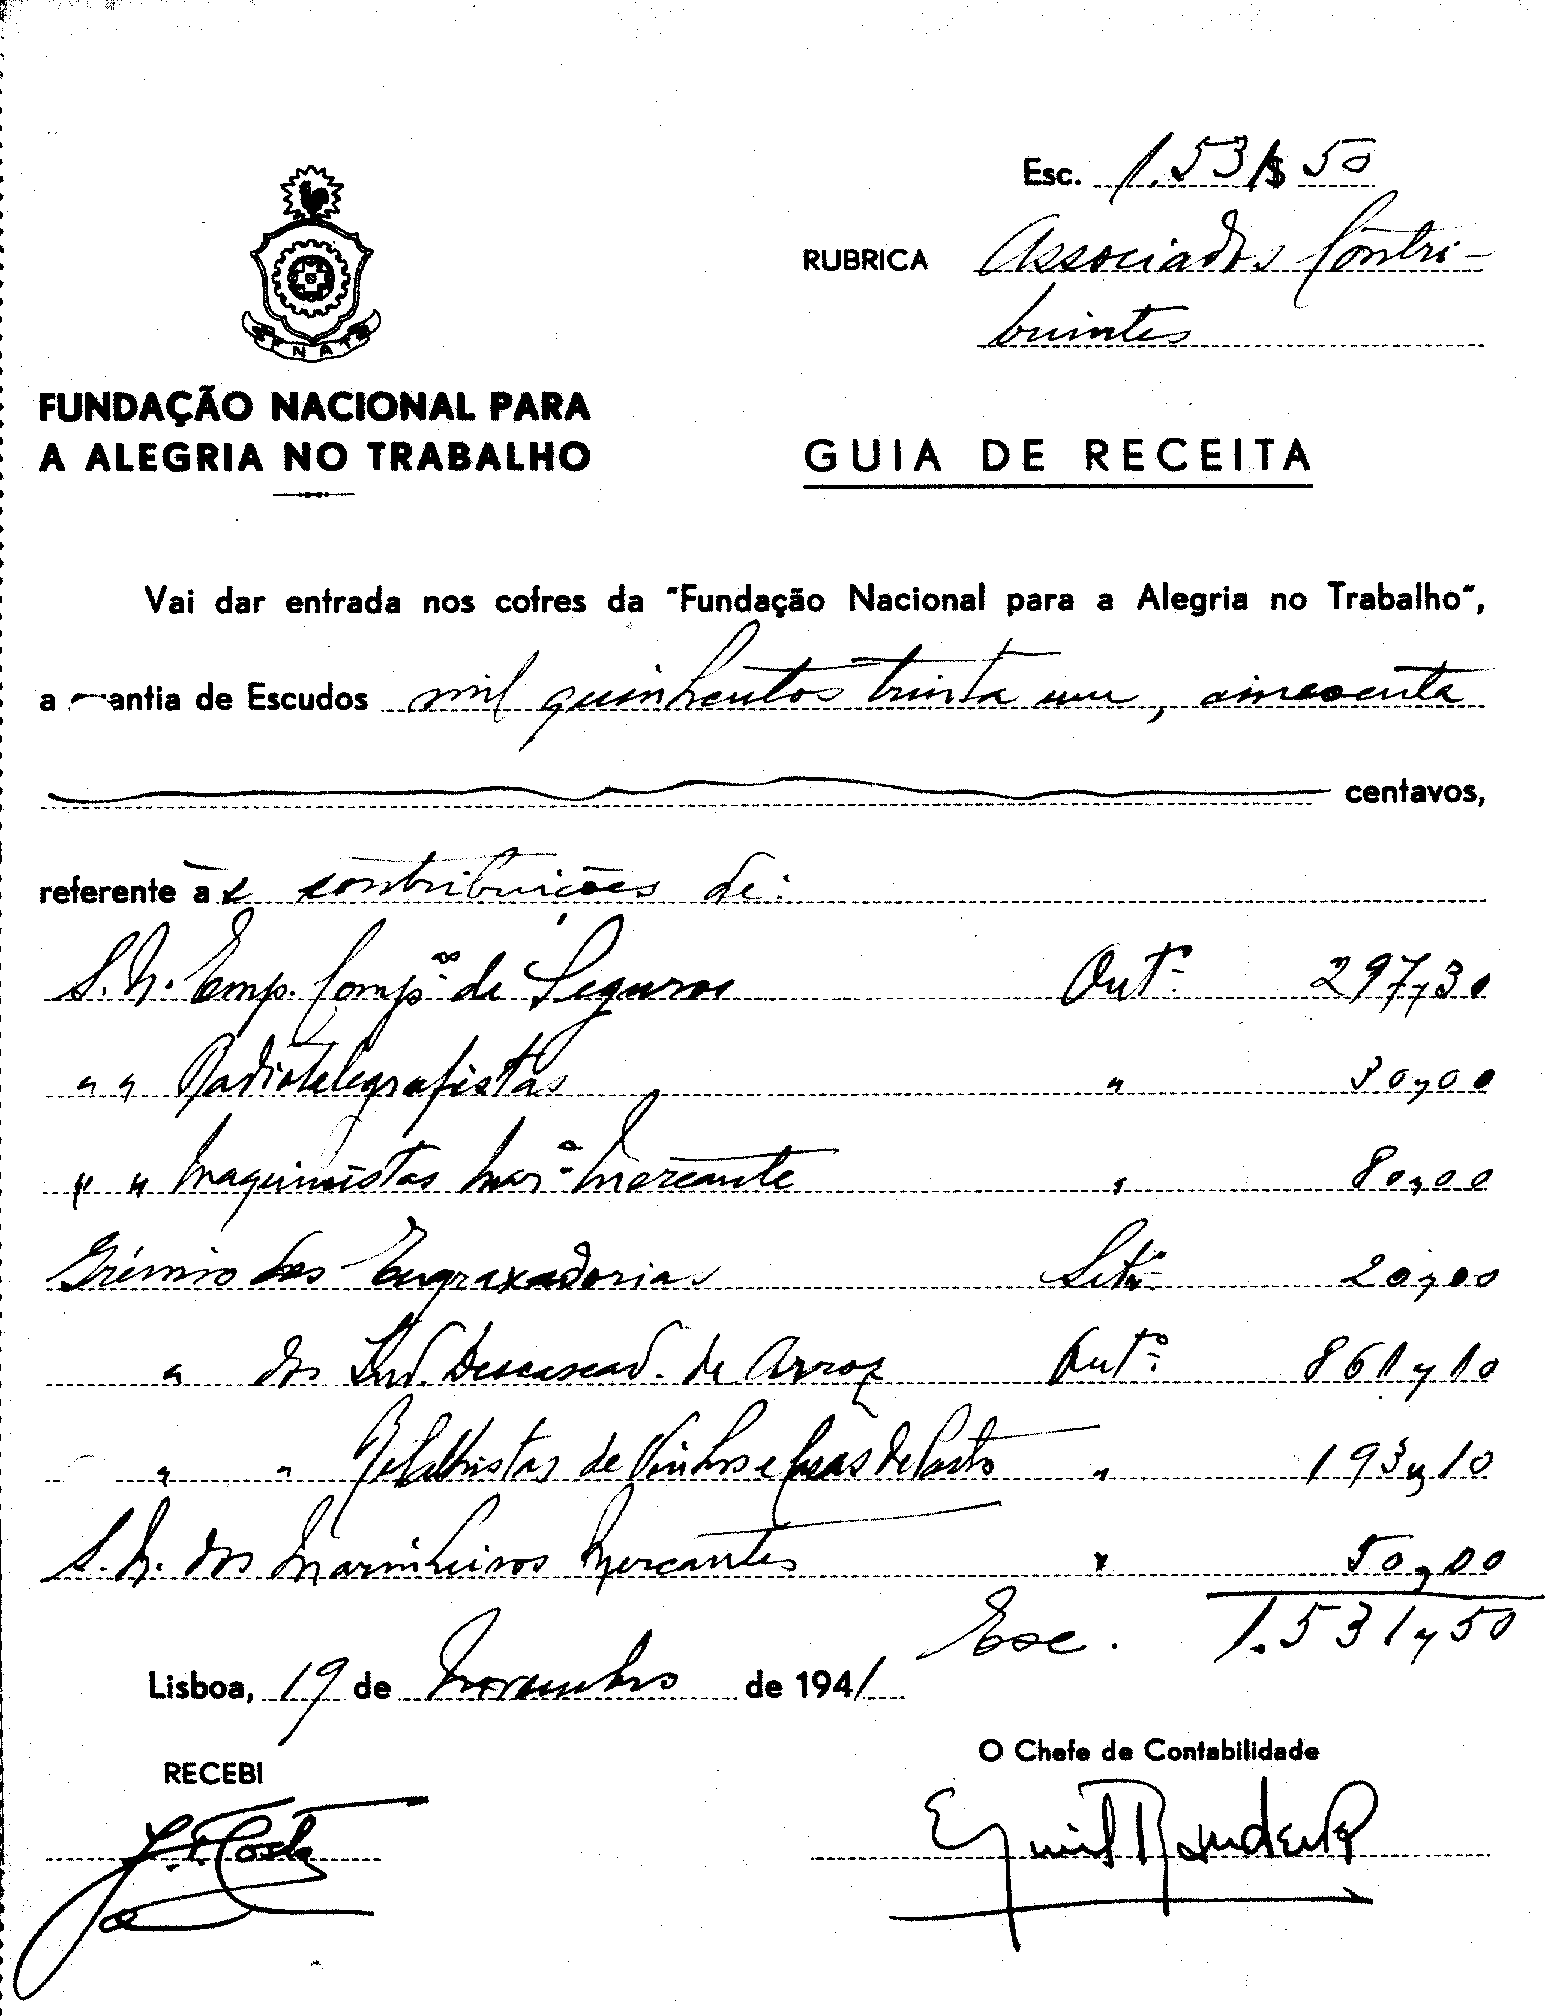 Esc. 1.531$50
RUBRICA Associados Contri-
buintes
FNAT
FUNDAÇÃO NACIONAL PARA
A ALEGRIA NO TRABALHO
GUIA DE RECEITA
Vai dar entrada nos cofres da "Fundação Nacional para a Alegria no Trabalho",
a quantia de Escudos mil quinhentos trinta um, cincoenta
centavos,
referente às contribuições de:
S.N. Emp. Comp.as de Seguros Out.º 297,30
" " Radiotelegrafistas " 30,00
" " Maquinistas Mar.ª Mercante " 80,00
Grémio das Engraxadorias Set.º 20,00
" dos Ind. Descascad. de Arroz Out.º 861,10
" " Retalhistas de Vinhos e Casas de Pasto " 193,10
S.N. dos Marinheiros Mercantes " 50,00
Esc. 1.531,50
Lisboa, 19 de Novembro de 1941
RECEBI
O Chefe de Contabilidade
Costa